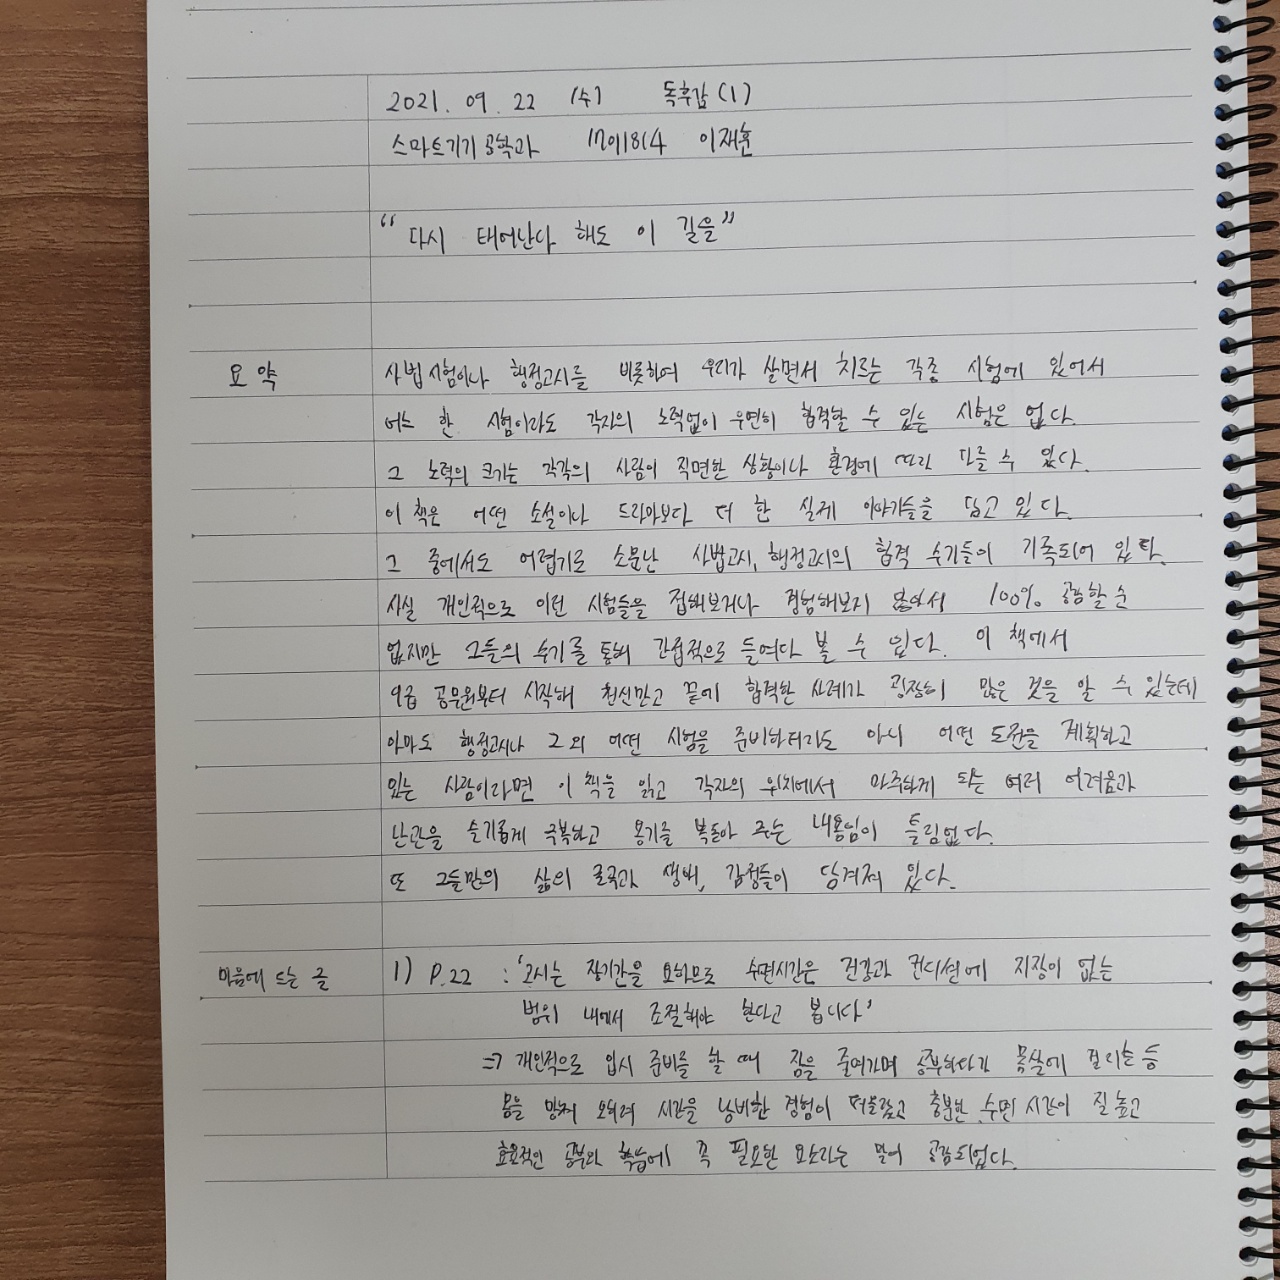 2021. 09. 22 (수) 독후감(1)
스마트기기공학과 이재훈
"다시 태어난다 해도 이 길을"
요약
사법시험이나 행정고시를 비롯하여 우리가 살면서 치르는 각종 시험에 있어서
어느 한 시험이라도 각자의 노력없이 우연히 합격할 수 있는 시험은 없다.
그 노력의 크기는 각각의 사람이 직면한 상황이나 환경에 따라 다를 수 있다.
이 책은 어떤 소설이나 드라마보다 더 한 실제 이야기들을 담고 있다.
그 중에서도 어렵기로 소문난 사법고시, 행정고시의 합격 수기들이 기록되어 있다.
사실 개인적으로 이런 시험들을 접해보거나 경험해보지 않아서 100% 공감할 순
없지만 그들의 수기를 통해 간접적으로 들여다 볼 수 있다. 이 책에서
9급 공무원부터 시작해 천신만고 끝에 합격한 사례가 굉장히 많은 것을 알 수 있는데
아마도 행정고시나 그 외 어떤 시험을 준비하더라도 아니 어떤 도전을 계획하고
있는 사람이라면 이 책을 읽고 각자의 위치에서 마주하게 되는 여러 어려움과
난관을 슬기롭게 극복하고 용기를 북돋아 주는 내용임이 틀림없다.
또 그들만의 삶의 굴곡과 생각, 감정들이 담겨져 있다.
마음에 드는 글
1) P.22 : '고시는 장기간을 요하므로 수면시간은 건강과 컨디션에 지장이 없는
범위 내에서 조절해야 한다고 봅니다'
=> 개인적으로 입시 준비를 할 때 잠을 줄여가며 공부하다가 몸살에 걸리는 등
몸을 망쳐 오히려 시간을 낭비한 경험이 떠올랐고 충분한 수면 시간이 질 높고
효율적인 공부와 학습에 꼭 필요한 요소라는 말이 공감되었다.